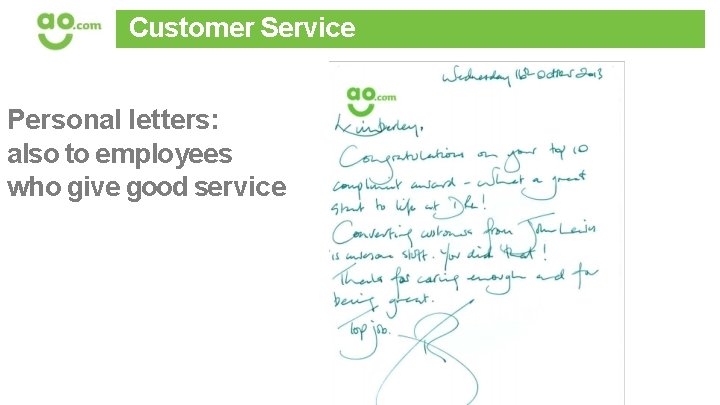 ao.com
Customer Service
Personal letters:
also to employees
who give good service
Wednesday 16th October 2013
ao.com
Kimberley,
Congratulations on your top 10
compliment award - what a great
start to life at DRL!
Converting customers from John Lewis
is awesome stuff. You did that!
Thanks for caring enough and for
being great.
Top job.